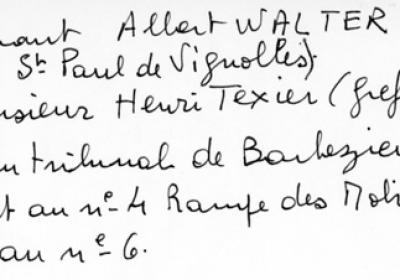 nant Albert WALTER
St Paul de Vignolles)
nsieur Henri Texier (gref
u tribunal de Barbezie
t au nº 4 Rampe des Moli
au nº 6.